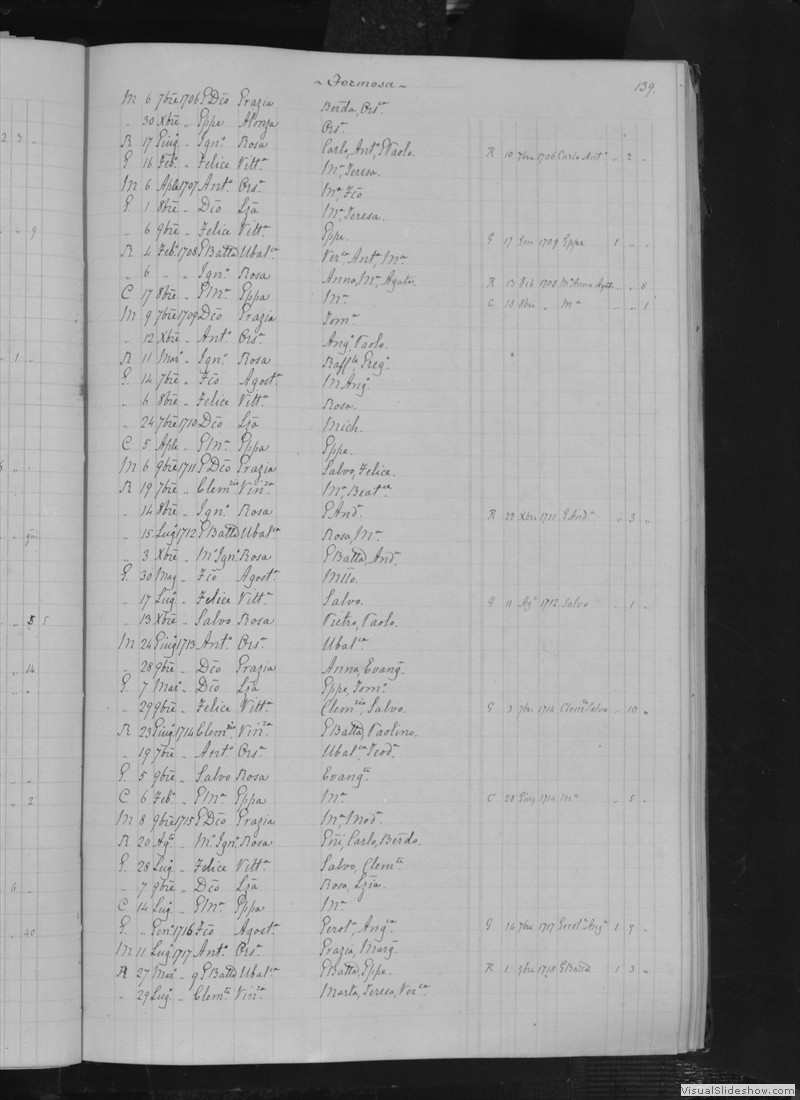 ~ Formosa ~ 139.
M 6 7bre 1706 G Dco Grazia Berda, Orsa.
" 30 Xbre " Gppe Alonza Orsa.
R 17 Giugo " Igno. Rosa Carlo, Anto, GPaolo. R 10 7bre 1706 Carlo Anto " 2 "
G 16 Febo. " Felice Vitta. Ma, Teresa.
M 6 Aple 1707 Anto. Orsa. Ma, Fco
G 1 8bre " Dco Lza Ma, Teresa.
" 6 9bre " Felice Vitta. Gppe. G 17 Gen 1709 Gppe 1 " "
R 4 Febo. 1708 GBatta Ubalca Verca, Anta, Ma
" 6 " " Igno. Rosa Anna, Ma, Agata. R 13 Feb 1708 Ma Anna Agta " " 8
C 17 8bre " GMa. Gppa Ma C 18 8bre " Ma " " 1
M 9 7bre 1709 Dco Grazia Toma.
" 12 Xbre " Anto. Orsa. Ango, Paolo.
R 11 Maro. " Igno. Rosa Raffle, Grego.
G. 14 7bre " Fco Agosta. M Ango.
" 6 8bre " Felice Vitta. Rosa.
" 24 7bre 1710 Dco Lza Mich.
C 5 Aple " GMa. Gppa Gppe.
M 6 9bre 1711 G Dco Grazia Salvo, Felice.
R 19 7bre " Clemzio Vinza Ma, Beatce
" 14 8bre " Igno. Rosa G And. R 22 Xbre 1711 G And. " 3 "
" 15 Lugo 1712 GBatta Ubalca Rosa, Ma.
" 3 Xbre " Mo Igno. Rosa GBatta, And.
G. 30 Mag. " Fco Agosta. Mtto.
" 17 Lugo. " Felice Vitta. Salvo. G 11 Ago 1712 Salvo " 1 "
" 13 Xbre " Salvo Rosa Pietro, Paolo.
M 24 Giugo 1713 Anto. Orsa. Ubalca
" 28 9bre " Dco Grazia Anna, Evang.
G. 7 Maro. " Dco Lza Gppe, Tomo.
" 29 9bre " Felice Vitta. Clemzio, Salvo. G 3 7bre 1714 Clemte Salvo " 10 "
R 23 Giugo 1714 Clemzio Vinza GBatta, Paolino.
" 19 7bre " Anto. Orsa. Ubalca, Teod.
G. 5 9bre " Salvo Rosa Evangta
C 6 Febo. " GMa. Gppa Ma C 28 Giug 1714 Ma " 5 "
M 8 9bre 1715 G Dco Grazia Ma, Moda.
R 20 Ago. " Mo Igno. Rosa Gni, Carlo, Berdo.
G. 28 Lugo. " Felice Vitta. Salvo, Clemte
" 7 9bre " Dco Lza Rosa, Lzia.
C 14 Lug. " GMa. Gppa Ma
G. " Geno. 1716 Fco Agosta. Gerola, Angca G 16 7bre 1717 Gerola Anga 1 9 "
M 11 Lugo 1717 Anto. Orsa. Grazia, Marg.
R 27 Maro. " GBatta Ubalca GBatta, Gppe. R 1 9bre 1718 GBatta 1 3 "
" 29 Lugo. " Clemte Vinza Marta, Teresa, Verca
VisualSlideshow.com